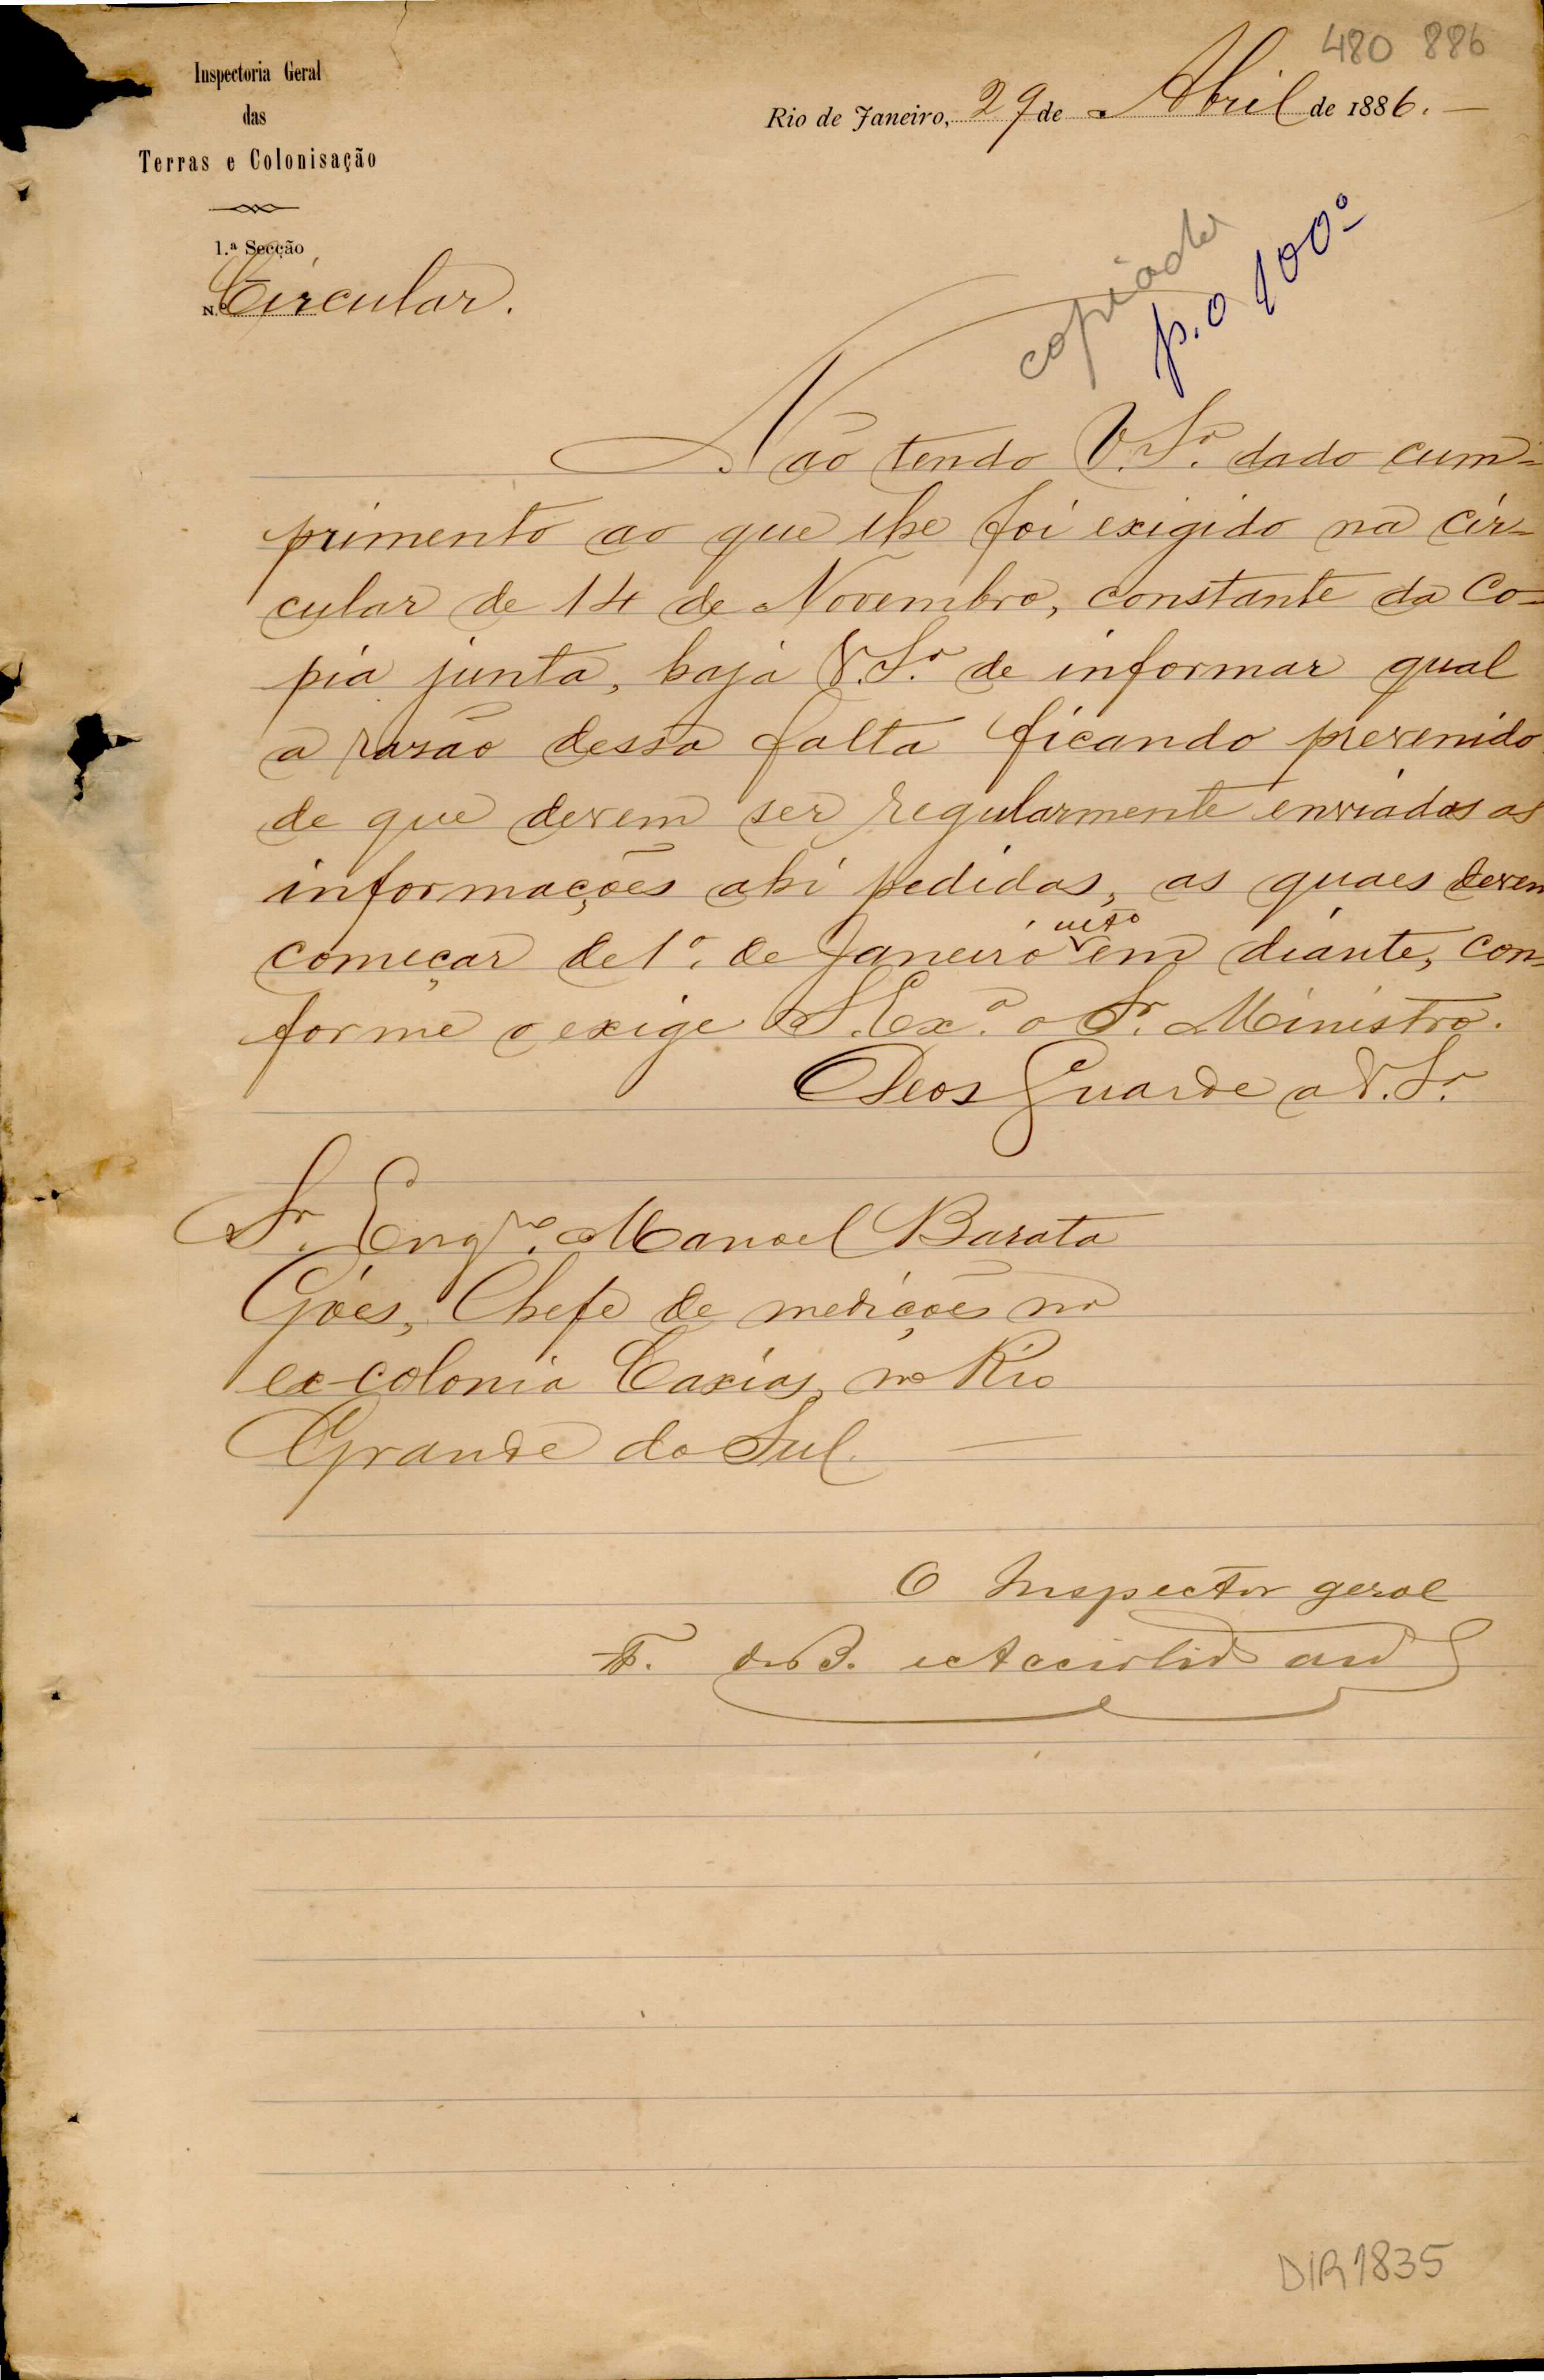 480 886
Inspectoria Geral
das
Terras e Colonisação
Rio de Janeiro, 29 de Abril de 1886.
1.ª Secção
N.º Circular.
copiada
p. o 100º
Não tendo V. Sª. dado cum-
primento ao que lhe foi exigido na cir-
cular de 14 de Novembro, constante da Co-
pia junta, haja V. Sª. de informar qual
a rasão dessa falta ficando prevenido
de que devem ser regularmente enviadas as
informações ahi pedidas, as quaes devem
começar de 1º. de Janeiro em diante, con-
forme o exige S. Exª. o Sr. Ministro.
Deos Guarde a V. Sª.
Sr. Engro. Manoel Barata
Góes, Chefe de medições na
ex-colonia Caxias, no Rio
Grande do Sul.
O Inspector geral
F. de B. e Accioli de
DIR1835